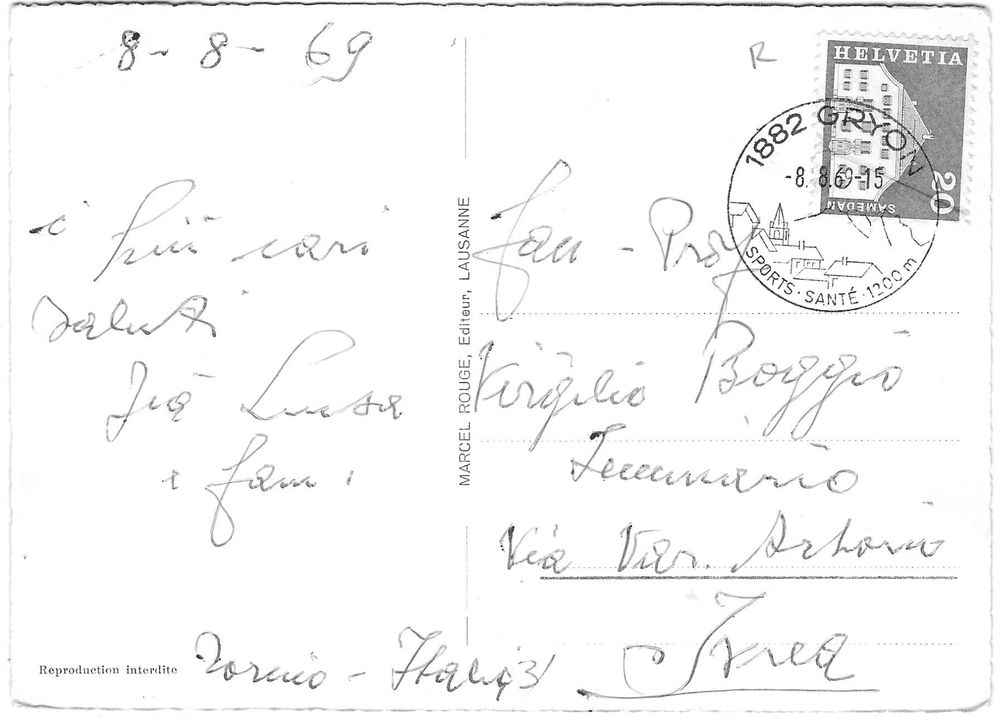 8 - 8 - 69
i più cari
saluti
Zia Luisa
e fam.
Reproduction interdite
MARCEL ROUGE, Editeur, LAUSANNE
R
HELVETIA
20
SAMEDAN
1882 GRYON
-8.8.69-15
SPORTS·SANTÉ·1200 m
Fam - Prof
Virgilio Boggio
Via
Ivrea
Torino - Italia